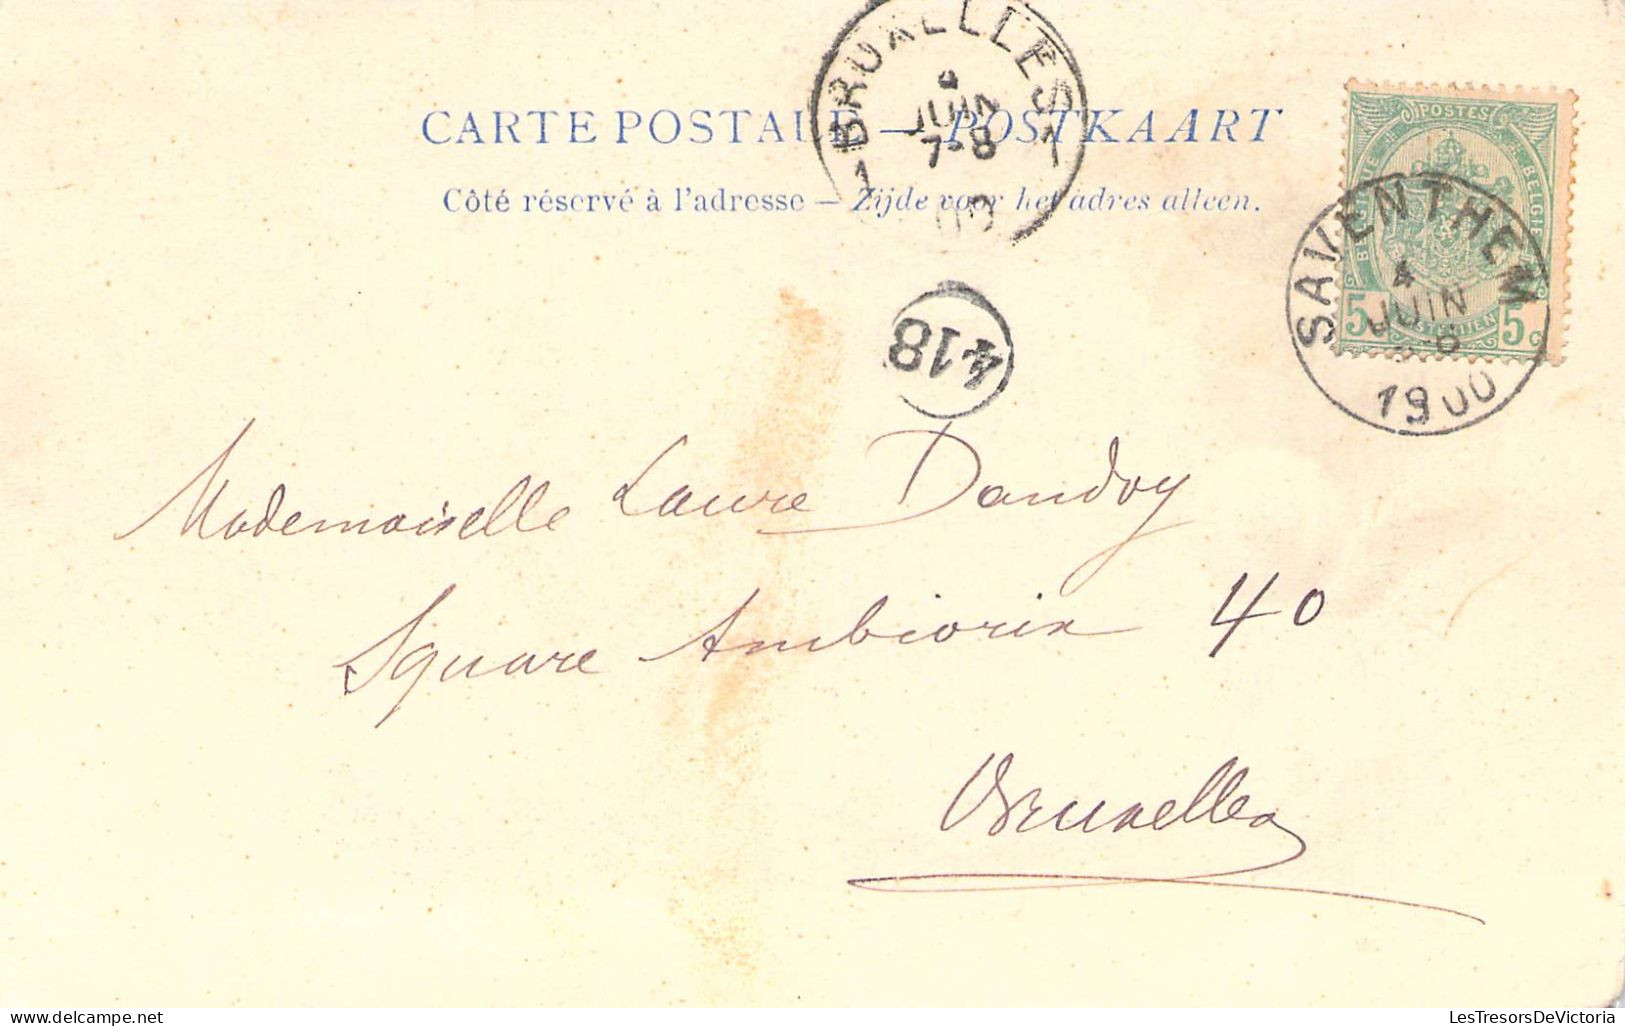 BRUXELLES 1
JUIN
7-8
CARTE POSTALE — POSTKAART
Côté réservé à l'adresse — Zijde voor het adres alleen.
POSTES
BELGIQUE
BELGIE
5
POSTERIJEN
5c
SAVENTHEM
4
JUIN
1900
418
Mademoiselle Laure Dandoy
Square Ambiorix 40
Bruxelles
delcampe.net
LesTresorsDeVictoria